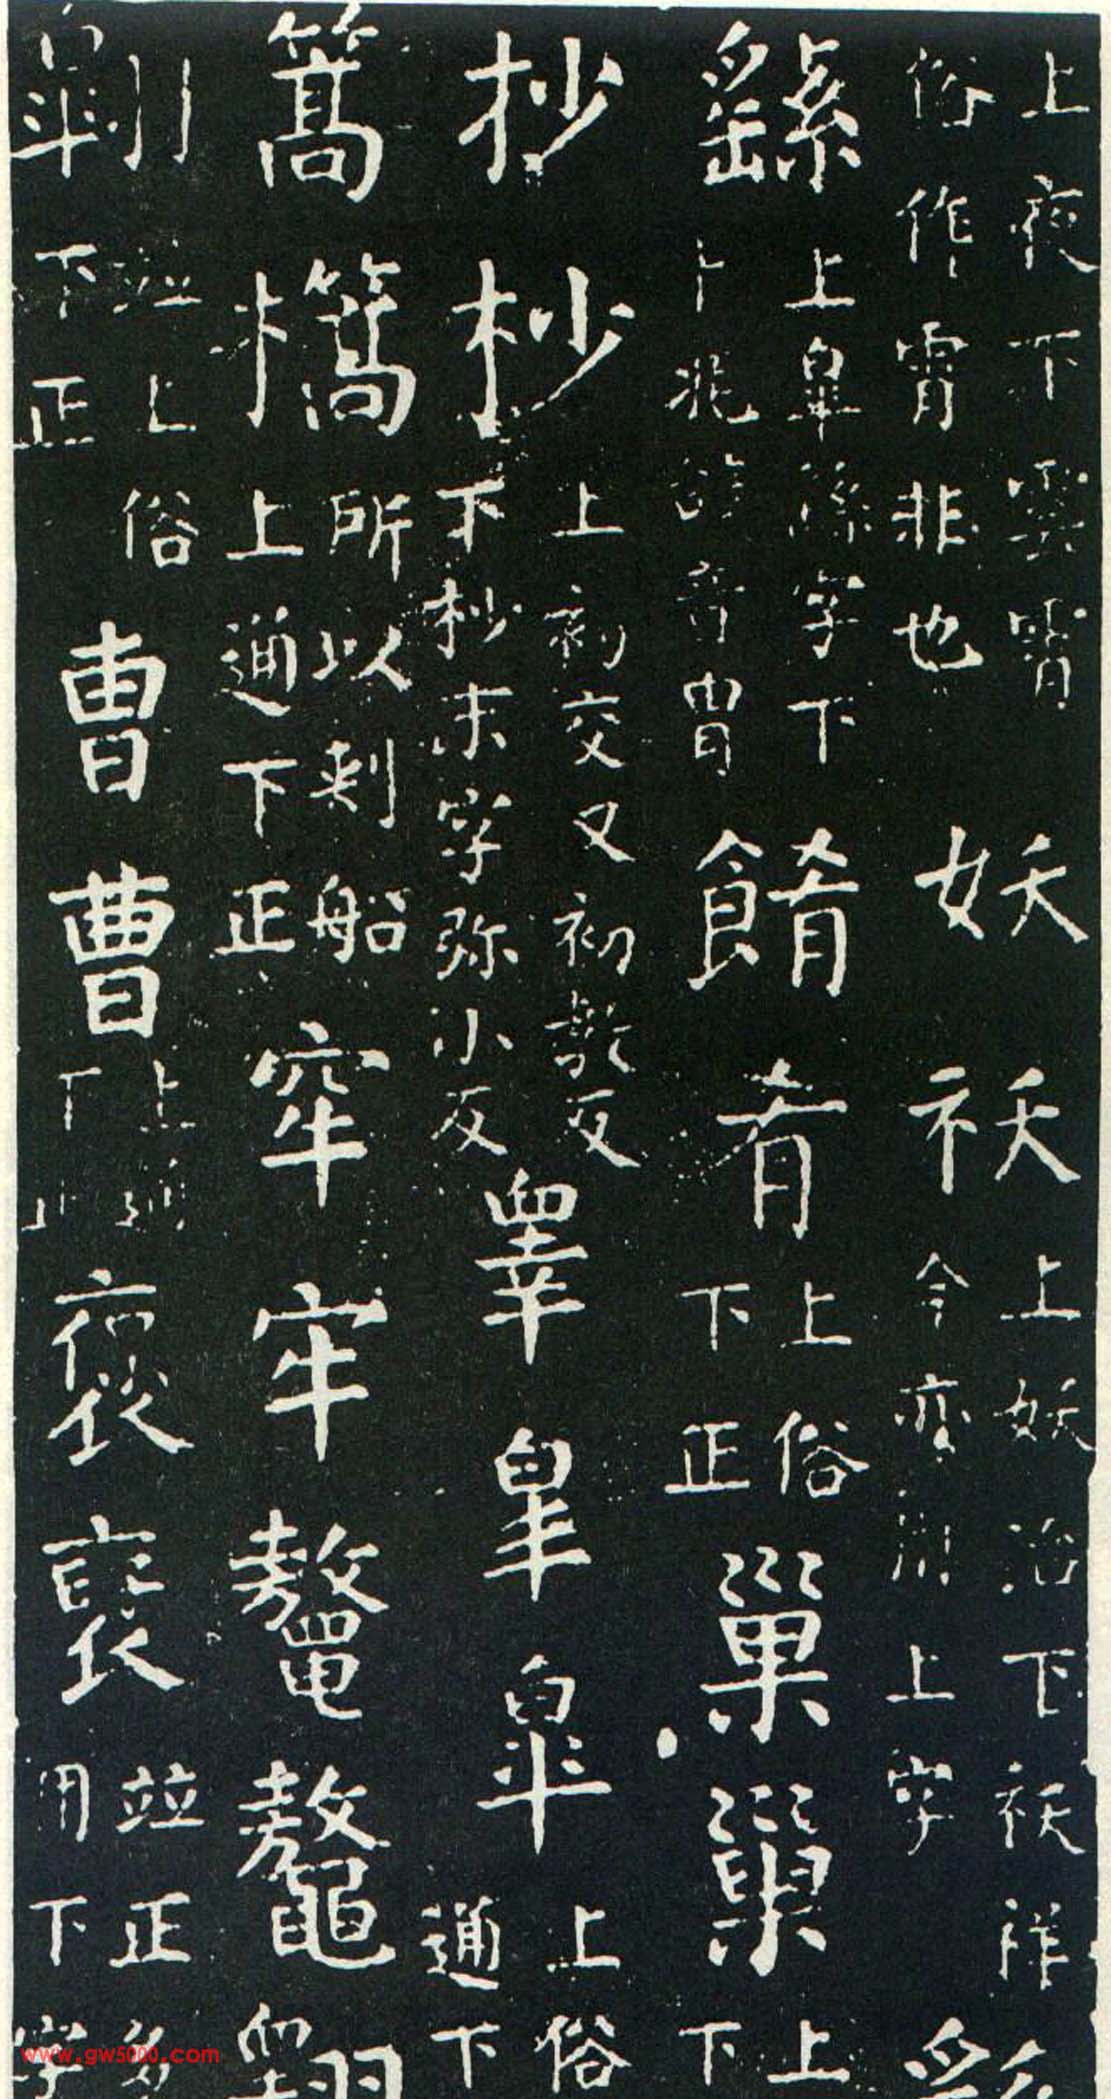 上夜下雲霄
俗作宵非也
妖祅
上妖冶下祅祥
今亦用上字
繇
上皐繇字下
卜兆辞音冑
餚肴
上俗
下正
巢巢
上
下
抄杪
上初交又初教反
下杪末字弥小反
皐皋
上俗
通下
篙
所以刺船
上通下正
窂牢
鼇
並上俗
下正
曺曹
上通
下正
褒襃
並正多
用下字
www.gw5000.com